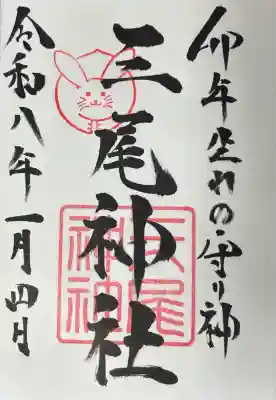 卯年生れの守り神
三尾神社
三尾神社
令和八年一月四日